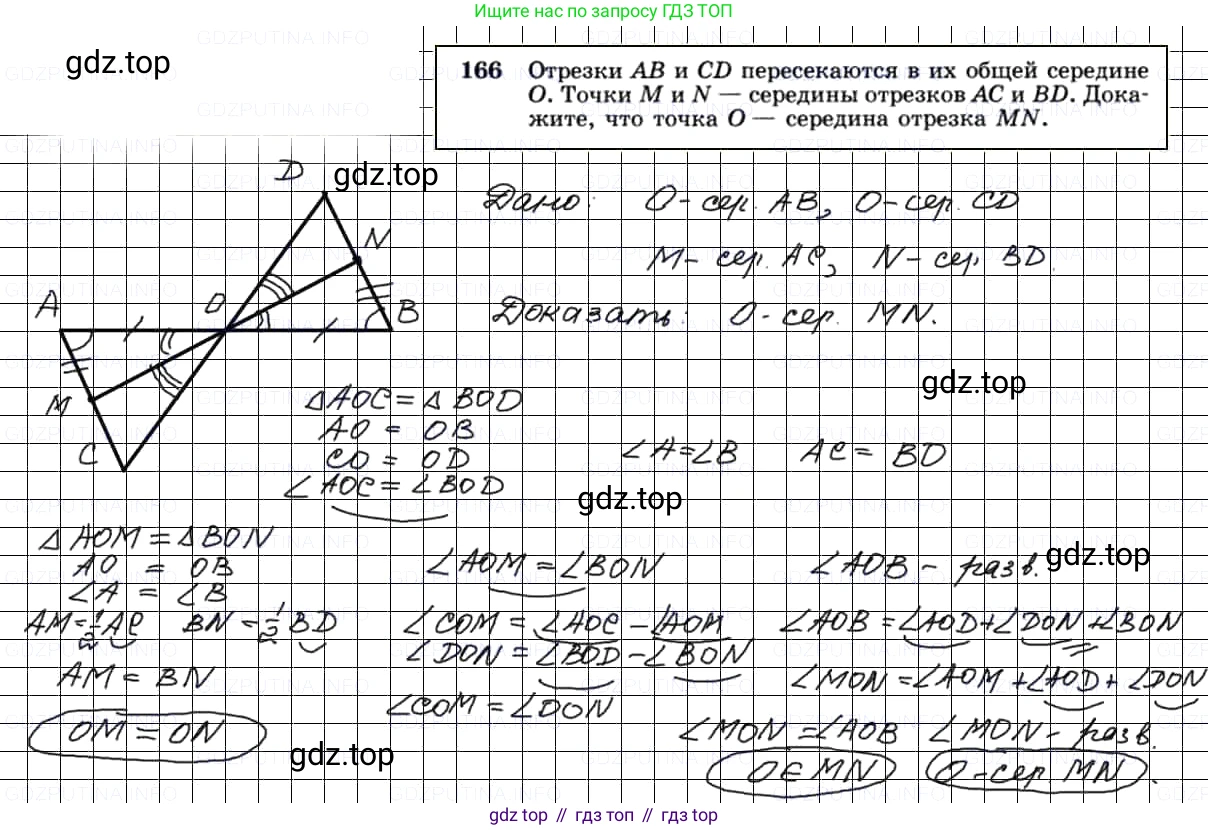 Ищите нас по запросу ГДЗ ТОП
gdz.top
166 Отрезки AB и CD пересекаются в их общей середине
O. Точки M и N — середины отрезков AC и BD. Дока-
жите, что точка O — середина отрезка MN.
D
gdz.top
N
A
O
B
M
C
Дано: O- сер. AB, O- сер. CD
M- сер. AC, N- сер. BD.
Доказать: O- сер. MN.
gdz.top
△AOC = △BOD
AO = OB
CO = OD
∠AOC = ∠BOD
∠A = ∠B AC = BD
gdz.top
△AOM = △BON
AO = OB
∠A = ∠B
AM = 1/2 AC BN = 1/2 BD
AM = BN
OM = ON
∠AOM = ∠BON
∠COM = ∠AOC - ∠AOM
∠DON = ∠BOD - ∠BON
∠COM = ∠DON
gdz.top
∠AOB - разв.
gdz.top
∠AOB = ∠AOD + ∠DON + ∠BON
∠MON = ∠AOM + ∠AOD + ∠DON
∠MON = ∠AOB ∠MON - разв.
O∈MN O-сер. MN.
gdz top // гдз топ // gdz.top
GDZPUTINA.INFO